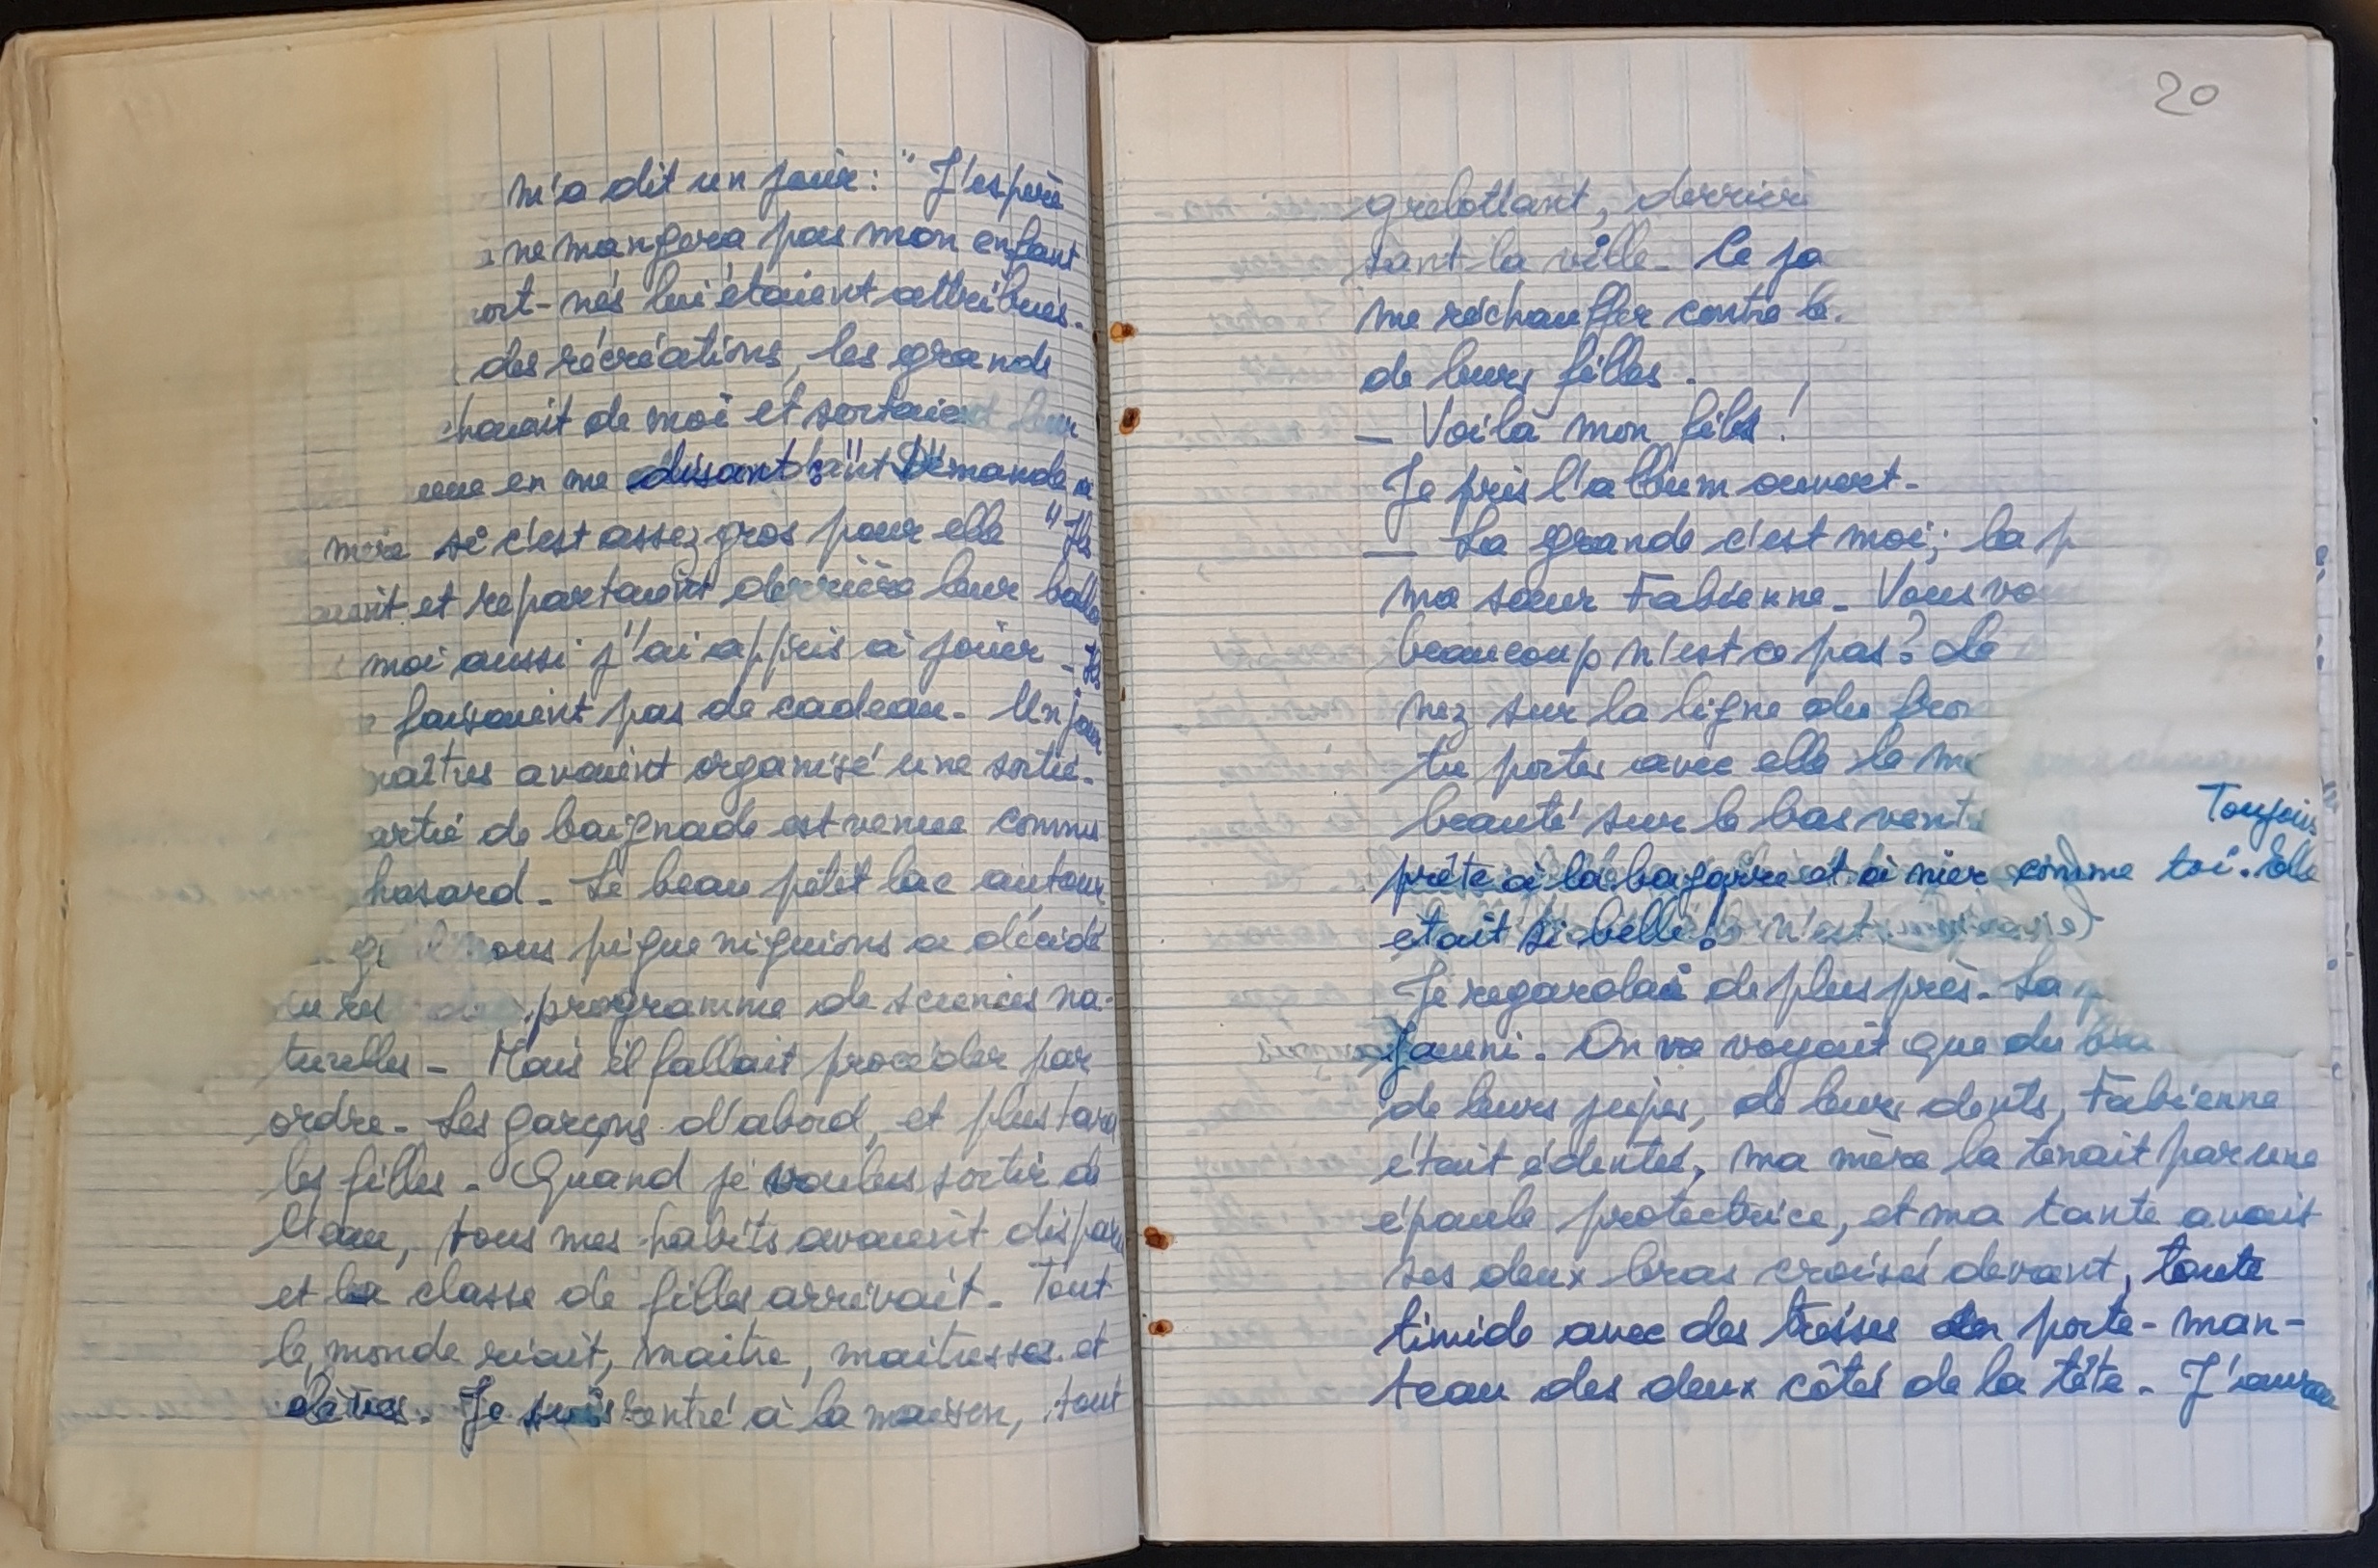 m'a dit un jour : " J'espère
ne mangera pas mon enfant
ort-nés lui étaient attribués.
des récréations, les grands
de moi et sortaient leur
en me disant Demande à
mère si c'est assez gros pour elle " Ils
et repartaient derrière leur balle
moi aussi j'ai appris à jouer - Ils
faisaient pas de cadeau. Un jour
avaient organisé une sortie.
artie de baignade est venue comme
hasard. Le beau petit lac autour
ous pique niquions a décidé
programme de sciences na-
turelles - Mais il fallait procéder par
ordre. Les garçons d'abord, et plus tard
les filles - Quand je voulus sortir de
l'eau, tous mes habits avaient disparu
et la classe de filles arrivait. Tout
le monde riait, maitre, maitresses et
élèves. Je suis rentré à la maison, tout
20
grelottant, derrièr
sant la ville. Ce ja
me réchauffer contre le
de leurs filles.
— Voilà mon fils !
Je pris l'album ouvert.
— La grande c'est moi ; la p
ma sœur Fabienne. Vous vo
beaucoup n'est ce pas ? Le
nez sur la ligne du fron
tu portes avec elle le m
beauté sur le bas vent
Toujours
prête à la bagarre et à nier comme toi. Elle
était si belle !
Je regardai de plus près. La p
jauni. On ne voyait que du bla
de leurs jupes, de leurs dents, Fabienne
était édentée, ma mère la tenait par une
épaule protectrice, et ma tante avait
ses deux bras croisés devant, toute
timide avec des tresses en porte-man-
teau des deux côtés de la tête. J'aurai